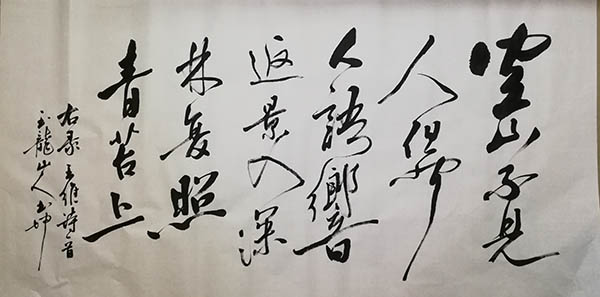 空山不見
人但闻
人語響
返景入深
林复照
青苔上
右录王維詩首
玉龍山人